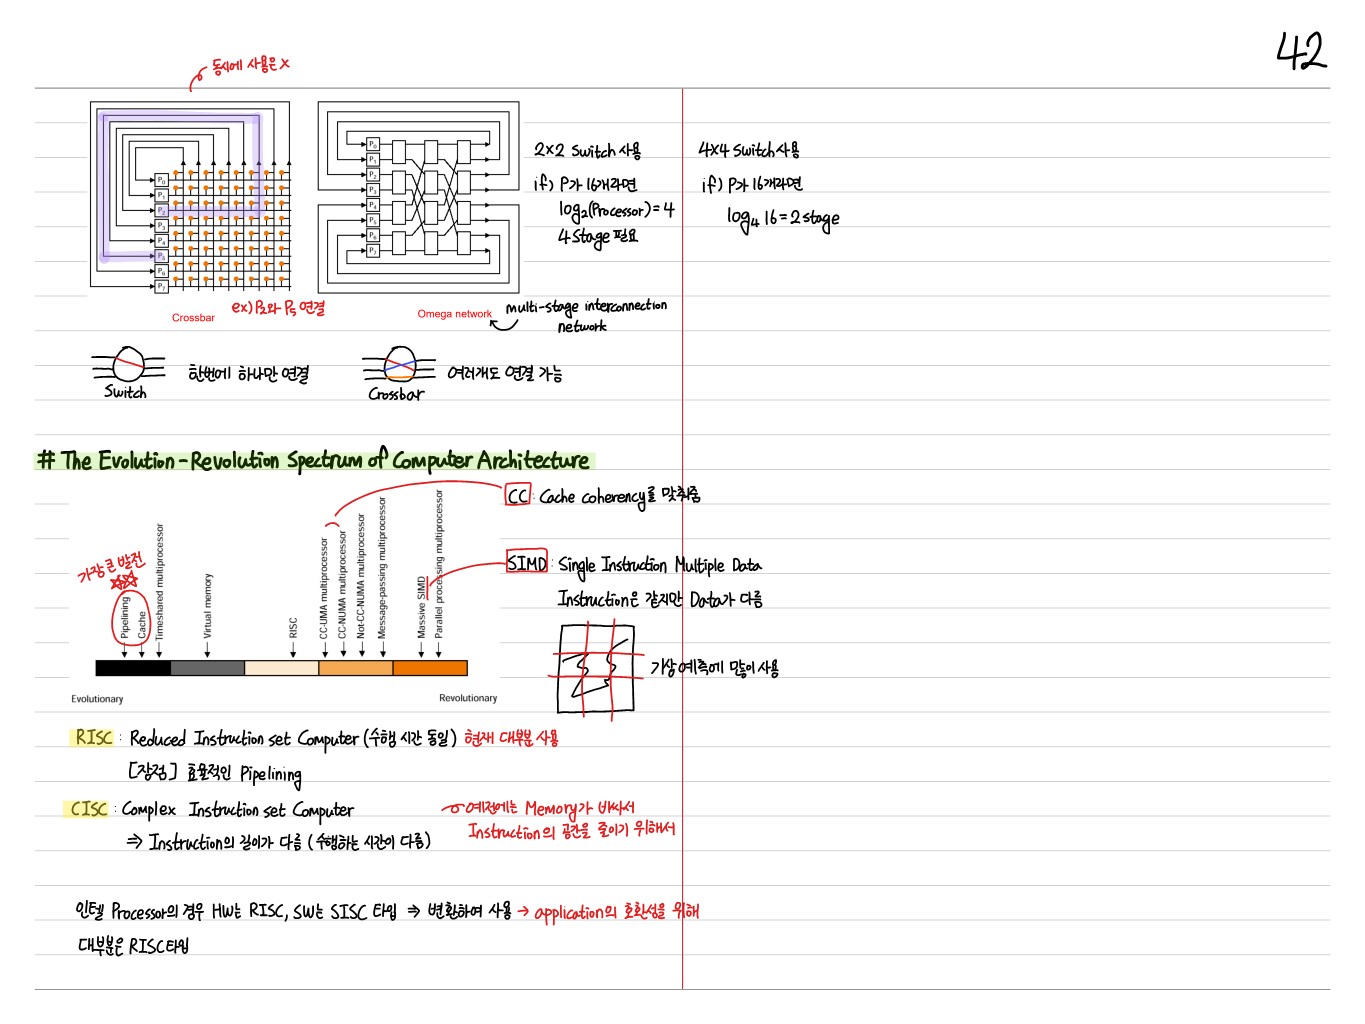 42
동시에 사용은 X
P0
P1
P2
P3
P4
P5
P6
P7
Crossbar
ex) P2와 P5 연결
P0
P1
P2
P3
P4
P5
P6
P7
Omega network
multi-stage interconnection
network
2x2 Switch 사용
if) P가 16개라면
log2(Processor) = 4
4 Stage 필요
4x4 Switch 사용
if) P가 16개라면
log4 16 = 2 stage
Switch
한번에 하나만 연결
Crossbar
여러개도 연결 가능
# The Evolution-Revolution Spectrum of Computer Architecture
가장 큰 발전
Pipelining
Cache
Timeshared multiprocessor
Virtual memory
RISC
CC-UMA multiprocessor
CC-NUMA multiprocessor
Not-CC-NUMA multiprocessor
Message-passing multiprocessor
Massive SIMD
Parallel processing multiprocessor
Evolutionary
Revolutionary
CC : Cache coherency를 맞춰줌
SIMD : Single Instruction Multiple Data
Instruction은 같지만 Data가 다름
기상예측에 많이 사용
RISC : Reduced Instruction set Computer (수행 시간 동일) 현재 대부분 사용
[장점] 효율적인 Pipelining
CISC : Complex Instruction set Computer
⇒ Instruction의 길이가 다름 (수행하는 시간이 다름)
예전에는 Memory가 비싸서
Instruction의 공간을 줄이기 위해서
인텔 Processor의 경우 HW는 RISC, SW는 SISC 타입 ⇒ 변환하여 사용 → application의 호환성을 위해
대부분은 RISC타입